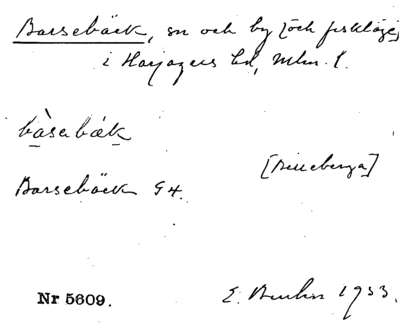 Barsebäck, sn och by [och fiskläge]
i Harjagers hd, Mlm. l.
bàsabǽk
[Billeberga]
Barsebäck G4.
Nr 5609. E. 1933.